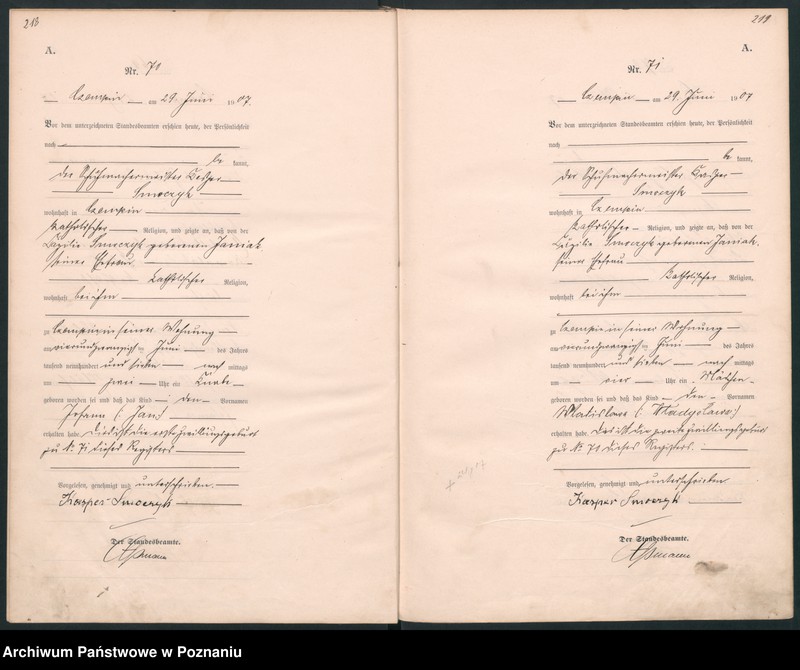 218
A.
Nr. 71
Czempin am 29. Juni 1907.
Vor dem unterzeichneten Standesbeamten erschien heute, der Persönlichkeit
nach
be kannt,
der Schuhmachermeister Kasper
Smoczyk
wohnhaft in Czempin
katholischer Religion, und zeigte an, daß von der
Cäzilie Smoczyk geborenen Janiak
seiner Ehefrau
katholischer Religion,
wohnhaft bei ihm
zu Czempin in seiner Wohnung
am vierundzwanzigsten Juni des Jahres
tausend neunhundert und sieben nach mittags
um zwei Uhr ein Knabe
geboren worden sei und daß das Kind den Vornamen
Johann (: Jan:)
erhalten habe. Dies ist die erste Zwillingsgeburt
zu No. 71 dieses Registers
Vorgelesen, genehmigt und unterschrieben.
Kasper Smoczyk
Der Standesbeamte.
219
A.
Nr. 71
Czempin am 29. Juni 1907
Vor dem unterzeichneten Standesbeamten erschien heute, der Persönlichkeit
nach
be kannt,
der Schuhmachermeister Kasper
Smoczyk
wohnhaft in Czempin
katholischer Religion, und zeigte an, daß von der
Cäzilie Smoczyk geborenen Janiak,
seiner Ehefrau
katholischer Religion,
wohnhaft bei ihm
zu Czempin in seiner Wohnung
am vierundzwanzigsten Juni des Jahres
tausend neunhundert und sieben nach mittags
um vier Uhr ein Mädchen
geboren worden sei und daß das Kind den Vornamen
Wladislawa (: Władysława:)
erhalten habe. Das ist die zweite Zwillingsgeburt
zu No. 71 dieses Registers.
Vorgelesen, genehmigt und unterschrieben
Kasper Smoczyk
Der Standesbeamte.
Archiwum Państwowe w Poznaniu